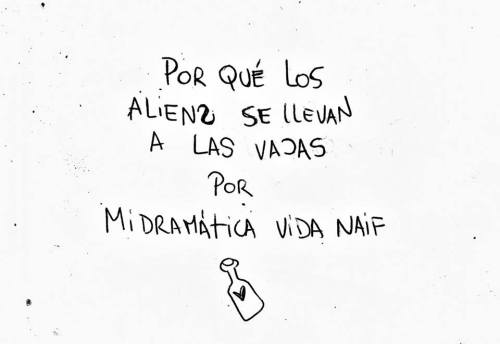 POR QUÉ LOS
ALIENS SE LLEVAN
A LAS VACAS
POR
MIDRAMÁTICA VIDA NAIF